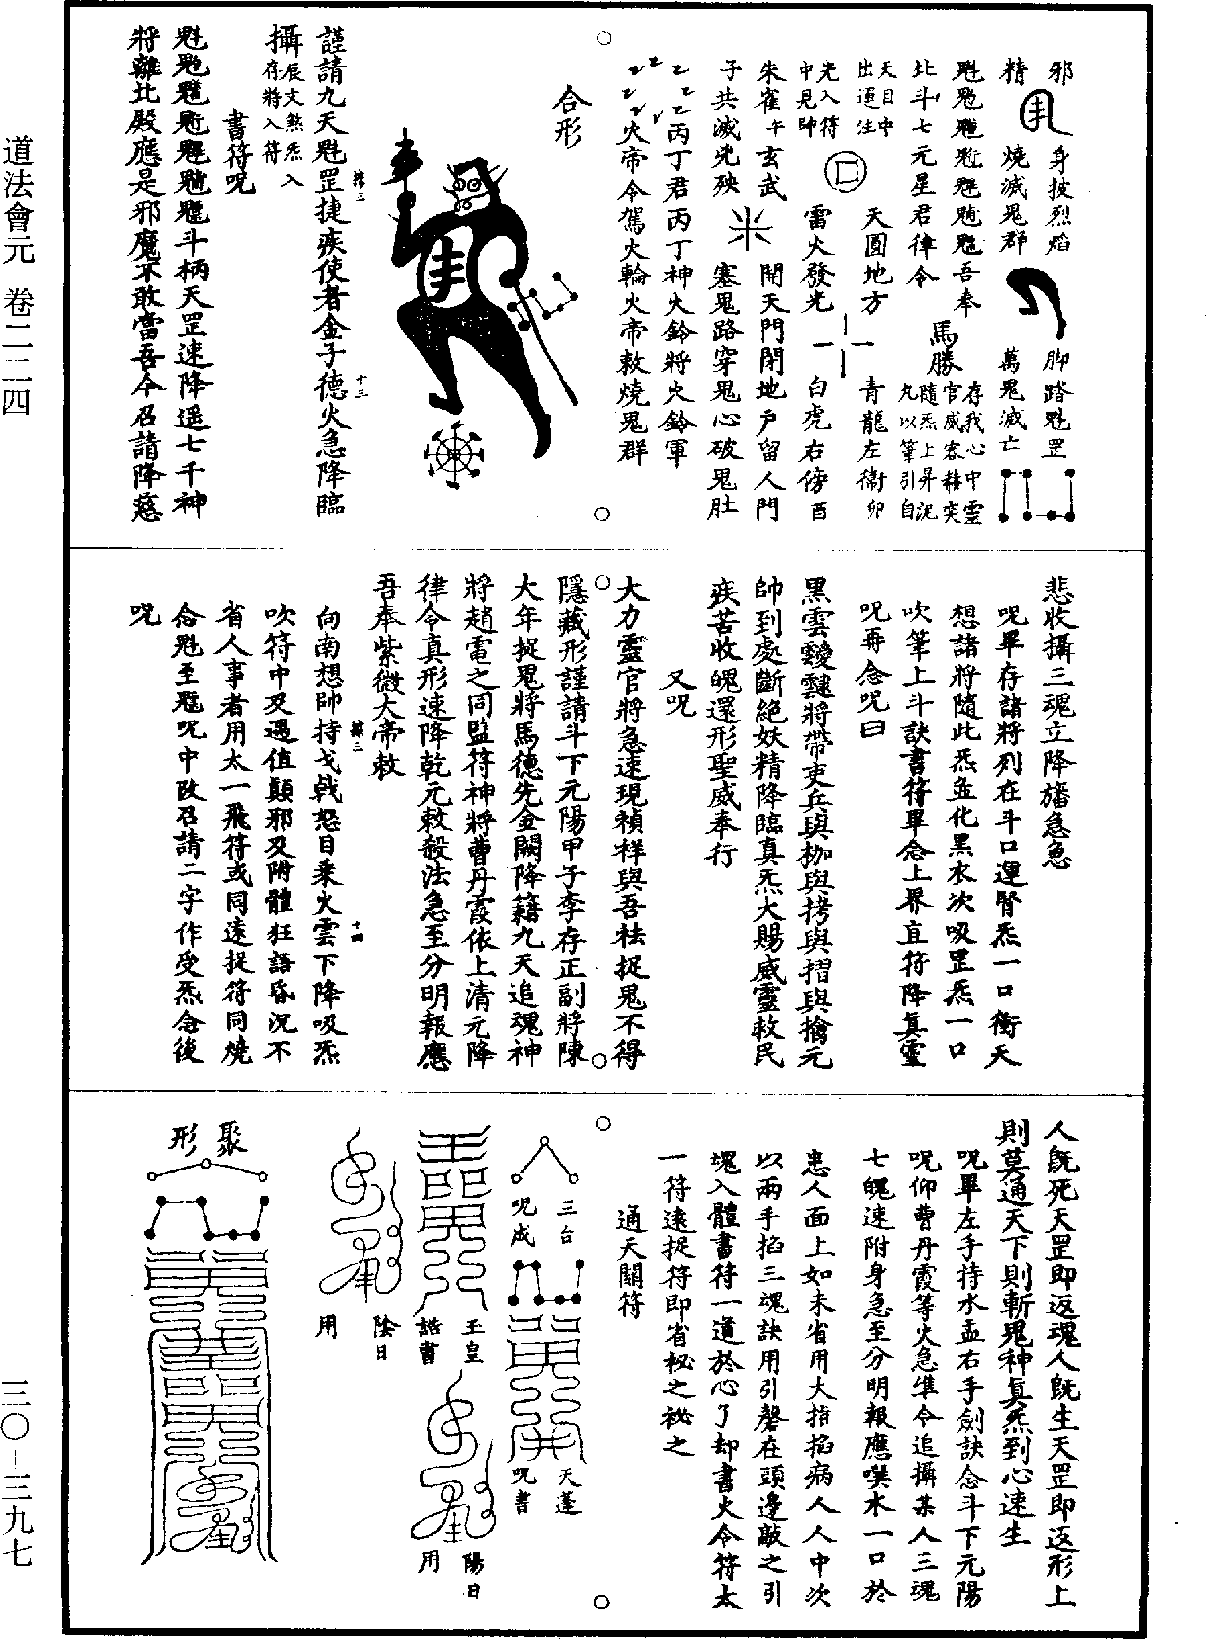 道法會元 卷二二四
三〇－三九七
邪 身披烈焰 脚踏魁罡
精 燒滅鬼群 萬鬼滅亡
吾奉
北斗七元星君律令 馬勝
存我心中靈官威容
隨炁上昇
九以筆引自
天目中出運注 天圓地方 青龍左衛 卯
光入符中見帥 雷火發光 白虎右傍 酉
朱雀午玄武 開天門閉地户留人門
子共滅兇殃 塞鬼路穿鬼心破鬼肚
丙丁君丙丁神火鈴將火鈴軍
火帝令駕火輪火帝敕燒鬼群
合形
謹請九天魁罡捷疾使者金子德火急降臨
十三
攝 辰文煞炁入 存將入符
書符咒
斗柄天罡速降遥七千神
將離北殿應是邪魔不敢當吾今召請降慈
悲收攝三魂立降旛急急
咒畢存諸將列在斗口運腎炁一口衝天
想諸將隨此炁並化黑衣次吸罡炁一口
吹筆上斗訣書符畢念上界直符降真靈
咒再念咒曰
黑雲靉靆將帶吏兵與枷與拷與摺與擒元
帥到處斷絕妖精降臨真炁大賜威靈救民
疾苦收魄還形聖威奉行
又咒
大力靈官將急速現禎祥與吾袪捉鬼不得
隱藏形謹請斗下元陽甲子李存正副將陳
大年捉鬼將馬德先金闕降籍九天追魂神
將趙電之同監符神將曹丹霞依上清元降
律令真形速降乾元敕殺法急至分明報應
吾奉紫微大帝敕
十四
向南想帥持戈戟怒目乘火雲下降吸炁
吹符中及遇值顛邪及附體狂語昏沉不
省人事者用太一飛符或同遠捉符同燒
念魁至魒咒中改召請二字作受炁念後
咒
人既死天罡即返魂人既生天罡即返形上
則莫通天下則斬鬼神真炁到心速生
咒畢左手持水盂右手劍訣念斗下元陽
咒仰曹丹霞等火急準令追攝某人三魂
七魄速附身急至分明報應噀水一口於
患人面上如未省用大指掐病人人中次
以兩手掐三魂訣用引磬在頭邊敲之引
塊入體書符一道於心了却書火令符太
一符遠捉符即省秘之祕之
通天關符
三台
咒成
天蓬
咒書
玉皇
誥書
陽日
用
陰日
用
聚形